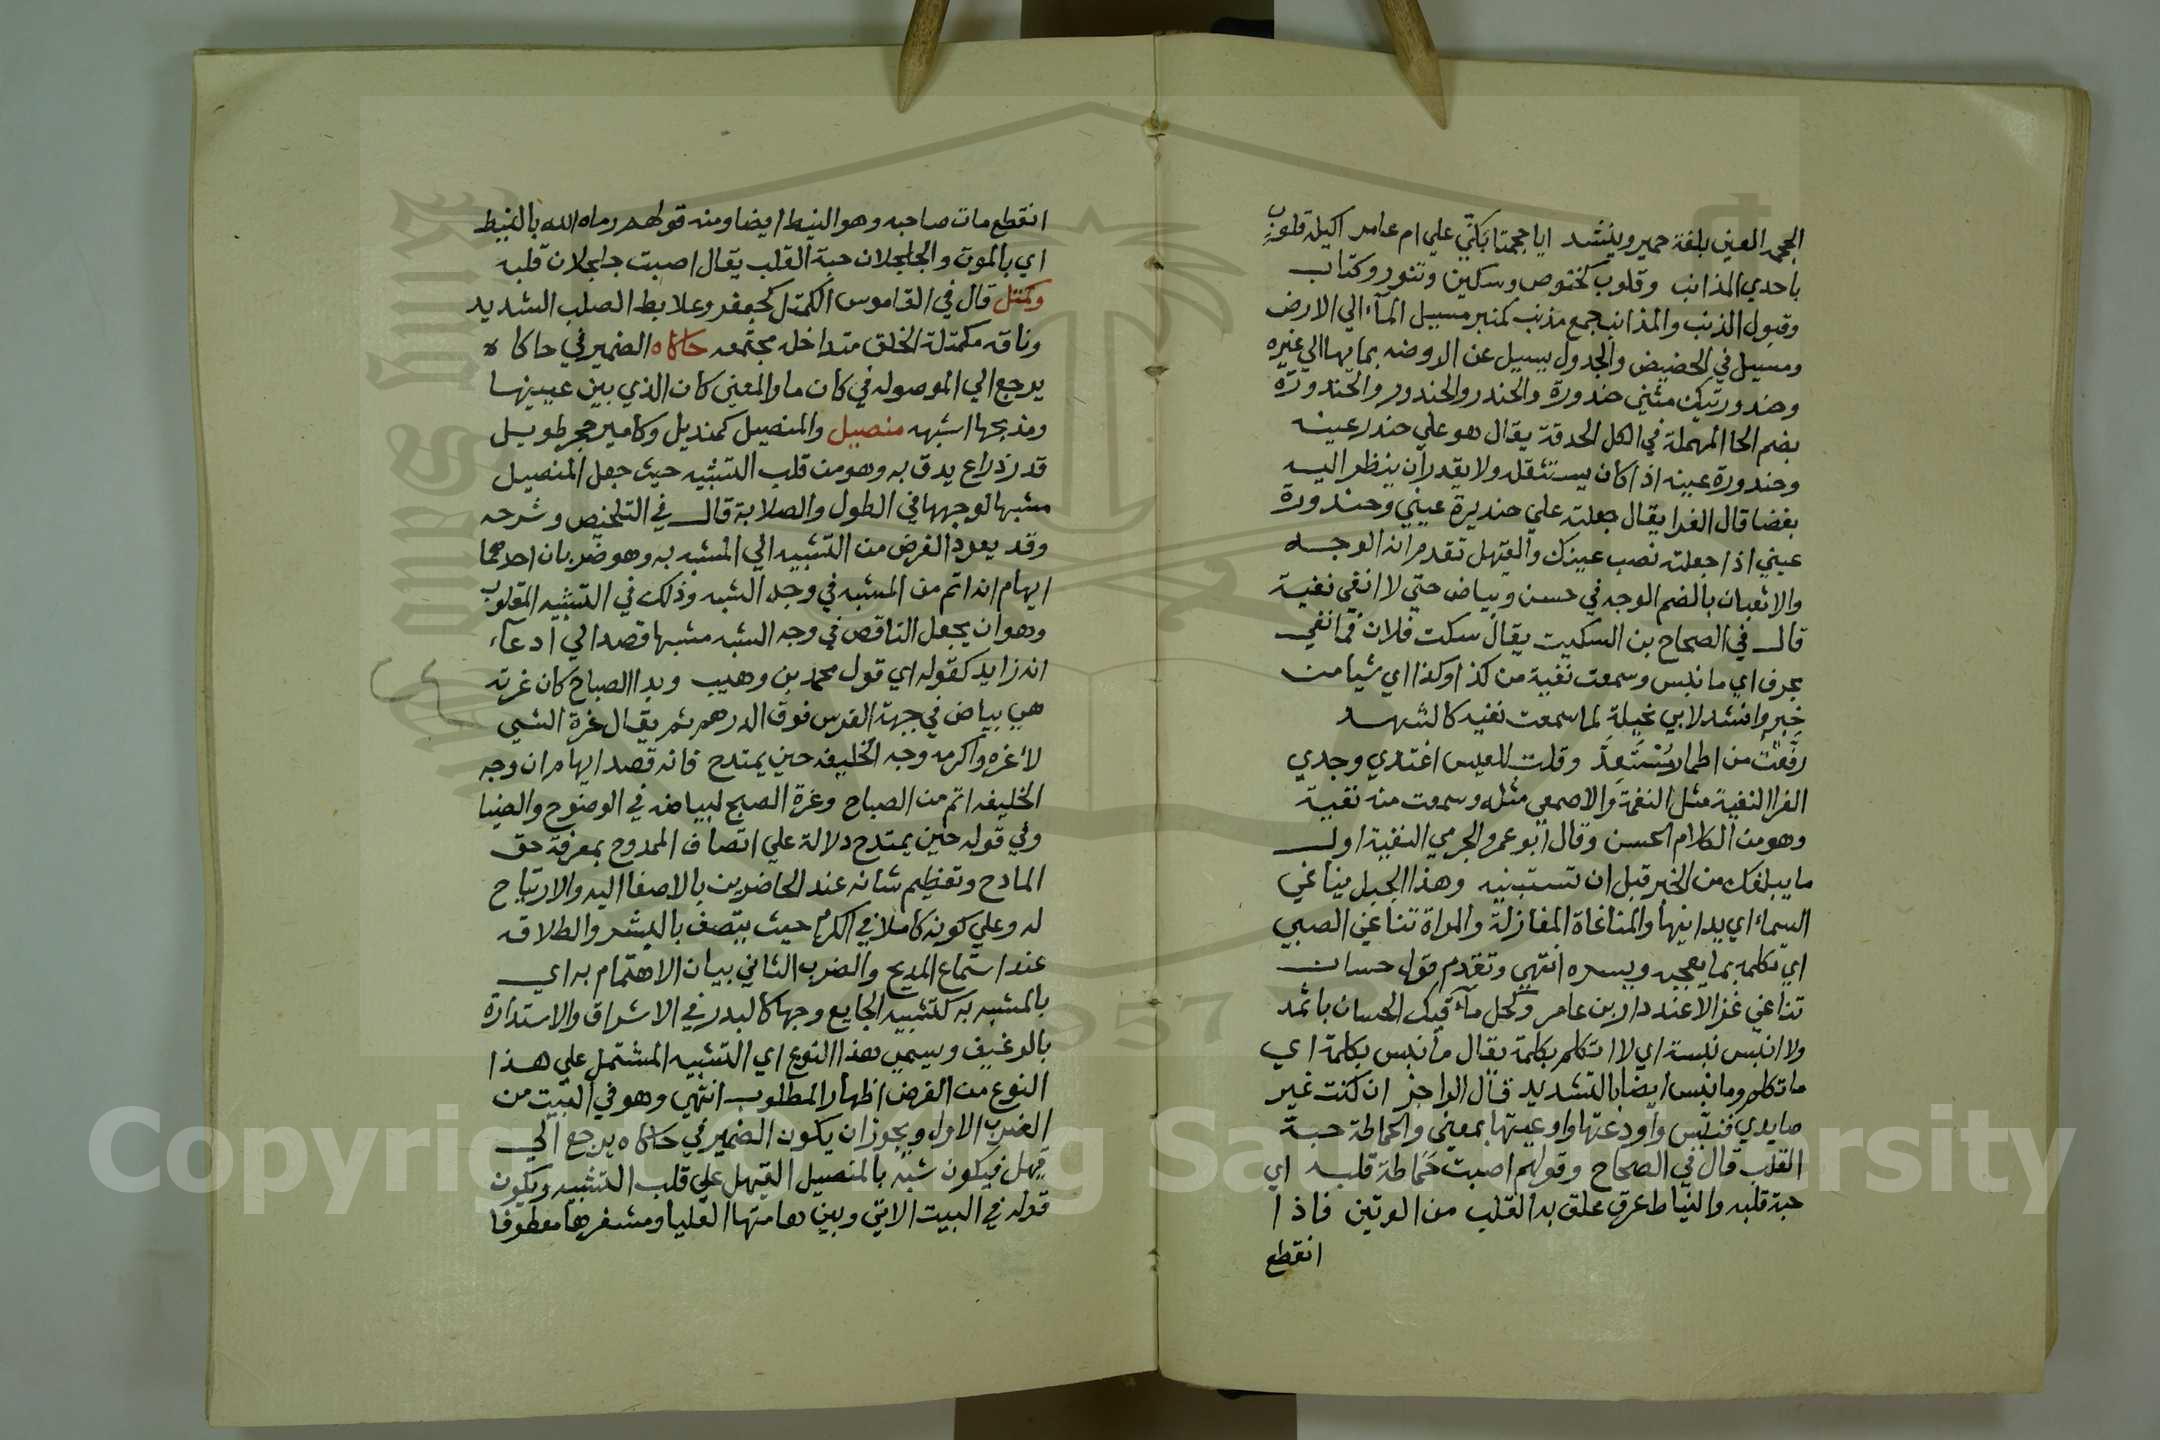 الجحم العين بلغة حمير وينشد ايا جحمتا بكتي علي ام عامر اكيلة قلوب
باحدي المذانب وقلوب كخنوص وسكين وتنور وكتاب
وقبول الذنب والمذانب جمع مذنب كمنبر مسيل المآء الي الارض
ومسيل في الحضيض والجدول يسيل عن الروضه بمايها الي غيره
وحندورتيك مثني حندورة والحندر والحندور والحندورة
بضم الحا المهملة في الكل الحدقة يقال هو علي حندر عينه
وحندورة عينه اذا كان يستثقله ولا يقدر ان ينظر اليه
بغضا قال الفرا يقال جعلته علي حنديرة عيني وحندورة
عيني اذا جعلته نصب عينك والقهل تقدم انه الوجه
والاثعبان بالضم الوجه في حسن وبياض حتي لا انفي نغية
قال في الصحاح بن السكيت يقال سكت فلان فما نغي
بحرف اي ما نبس وسمعت نغية من كذا وكذا اي شيا من
خبر وانشد لابي نخيلة لما سمعت نغيه كالشهد
رفعت من اطمار مستعد وقلت للعيس اغتدي وجدي
الفرا النغية مثل النغمة والاصمعي مثله وسمعت منه نغية
وهو من الكلام الحسن وقال ابو عمرو الجرمي النغية اول
ما يبلغك من الخبر قبل ان تستبنيه وهذا الجبل يناغي
السماء اي يدانيها والمناغاة المغازلة والمراة تناغي الصبي
اي تكلمه بما يعجبه ويسره انتهي وتقدم قول حسان
تناغي غزالا عند دار بن عامر وكحل مآء قيك الحسان باثمد
ولا انبس نبسة اي لا اتكلم بكلمة يقال ما نبس بكلمة اي
ما تكلم وما نبس ايضا بالتشديد قال الراجز ان كنت غير
صايدي فنبس واودعتها واوعيتها بمعني والحماطة حبة
القلب قال في الصحاح وقولهم اصبت حماطة قلبه اي
حبة قلبه والنياط عرق علق به القلب من الوتين فاذا
انقطع
انقطع مات صاحبه وهو النيط ايضا ومنه قولهم رماه الله بالنيط
اي بالموت والجلجلان حبة القلب يقال اصبت جلجلان قلبه
وكمتل قال في القاموس الكمتل كجعفر وعلابط الصلب الشديد
وناقه مكمتلة الخلق متداخله مجتمعه حاكاه الضمير في حاكاه
يرجع الي الموصوله في كان ما والمعني كان الذي بين عينيها
ومذبحها اشبهه منصيل والمنصيل كمنديل وكامير حجر طويل
قدر ذراع يدق به وهو من قلب التشبيه حيث جعل المنصيل
مشبها لوجهها في الطول والصلابة قال في التلخيص وشرحه
وقد يعود الغرض من التشبيه الي المشبه به وهو ضربان احدهما
ايهام انه اتم من المشبه في وجه الشبه وذلك في التشبيه المقلوب
وهو ان يجعل الناقص في وجه الشبه مشبها قصدا الي ادعآء
انه زايد كقوله اي قول محمد بن وهيب وبدا الصباح كان غرته
هي بياض في جبهة الفرس فوق الدرهم ثم يقال غرة الشي
لاغره واكرمه وجه الخليفه حين يمتدح فانه قصد ايهام ان وجه
الخليفه اتم من الصباح وغرة الصبح لبياضه في الوضوح والضيا
وفي قوله حين يمتدح دلالة علي اتصاف الممدوح بمعرفة حق
المادح وتعظيم شانه عند الحاضرين بالاصغا اليه والارتياح
له وعلي كونه كاملا في الكرم حيث يتصف بالبشر والطلاقه
عند استماع المديح والضرب الثاني بيان الاهتمام به اي
بالمشبه به كتشبيه الجايع وجها كالبدر في الاشراق والاستدارة
بالرغيف ويسمي هذا النوع اي التشبيه المشتمل علي هذا
النوع من الغرض اظهار المطلوب انتهي وهو في البيت من
الضرب الاول ويجوز ان يكون الضمير في حاكاه يرجع الي
قهل فيكون شبه بالمنصيل القهل علي قلب التشبيه ويكون
قوله في البيت الاتي وبين هامتها العليا ومشفرها معطوفا
Copyright © King Saud University
1957